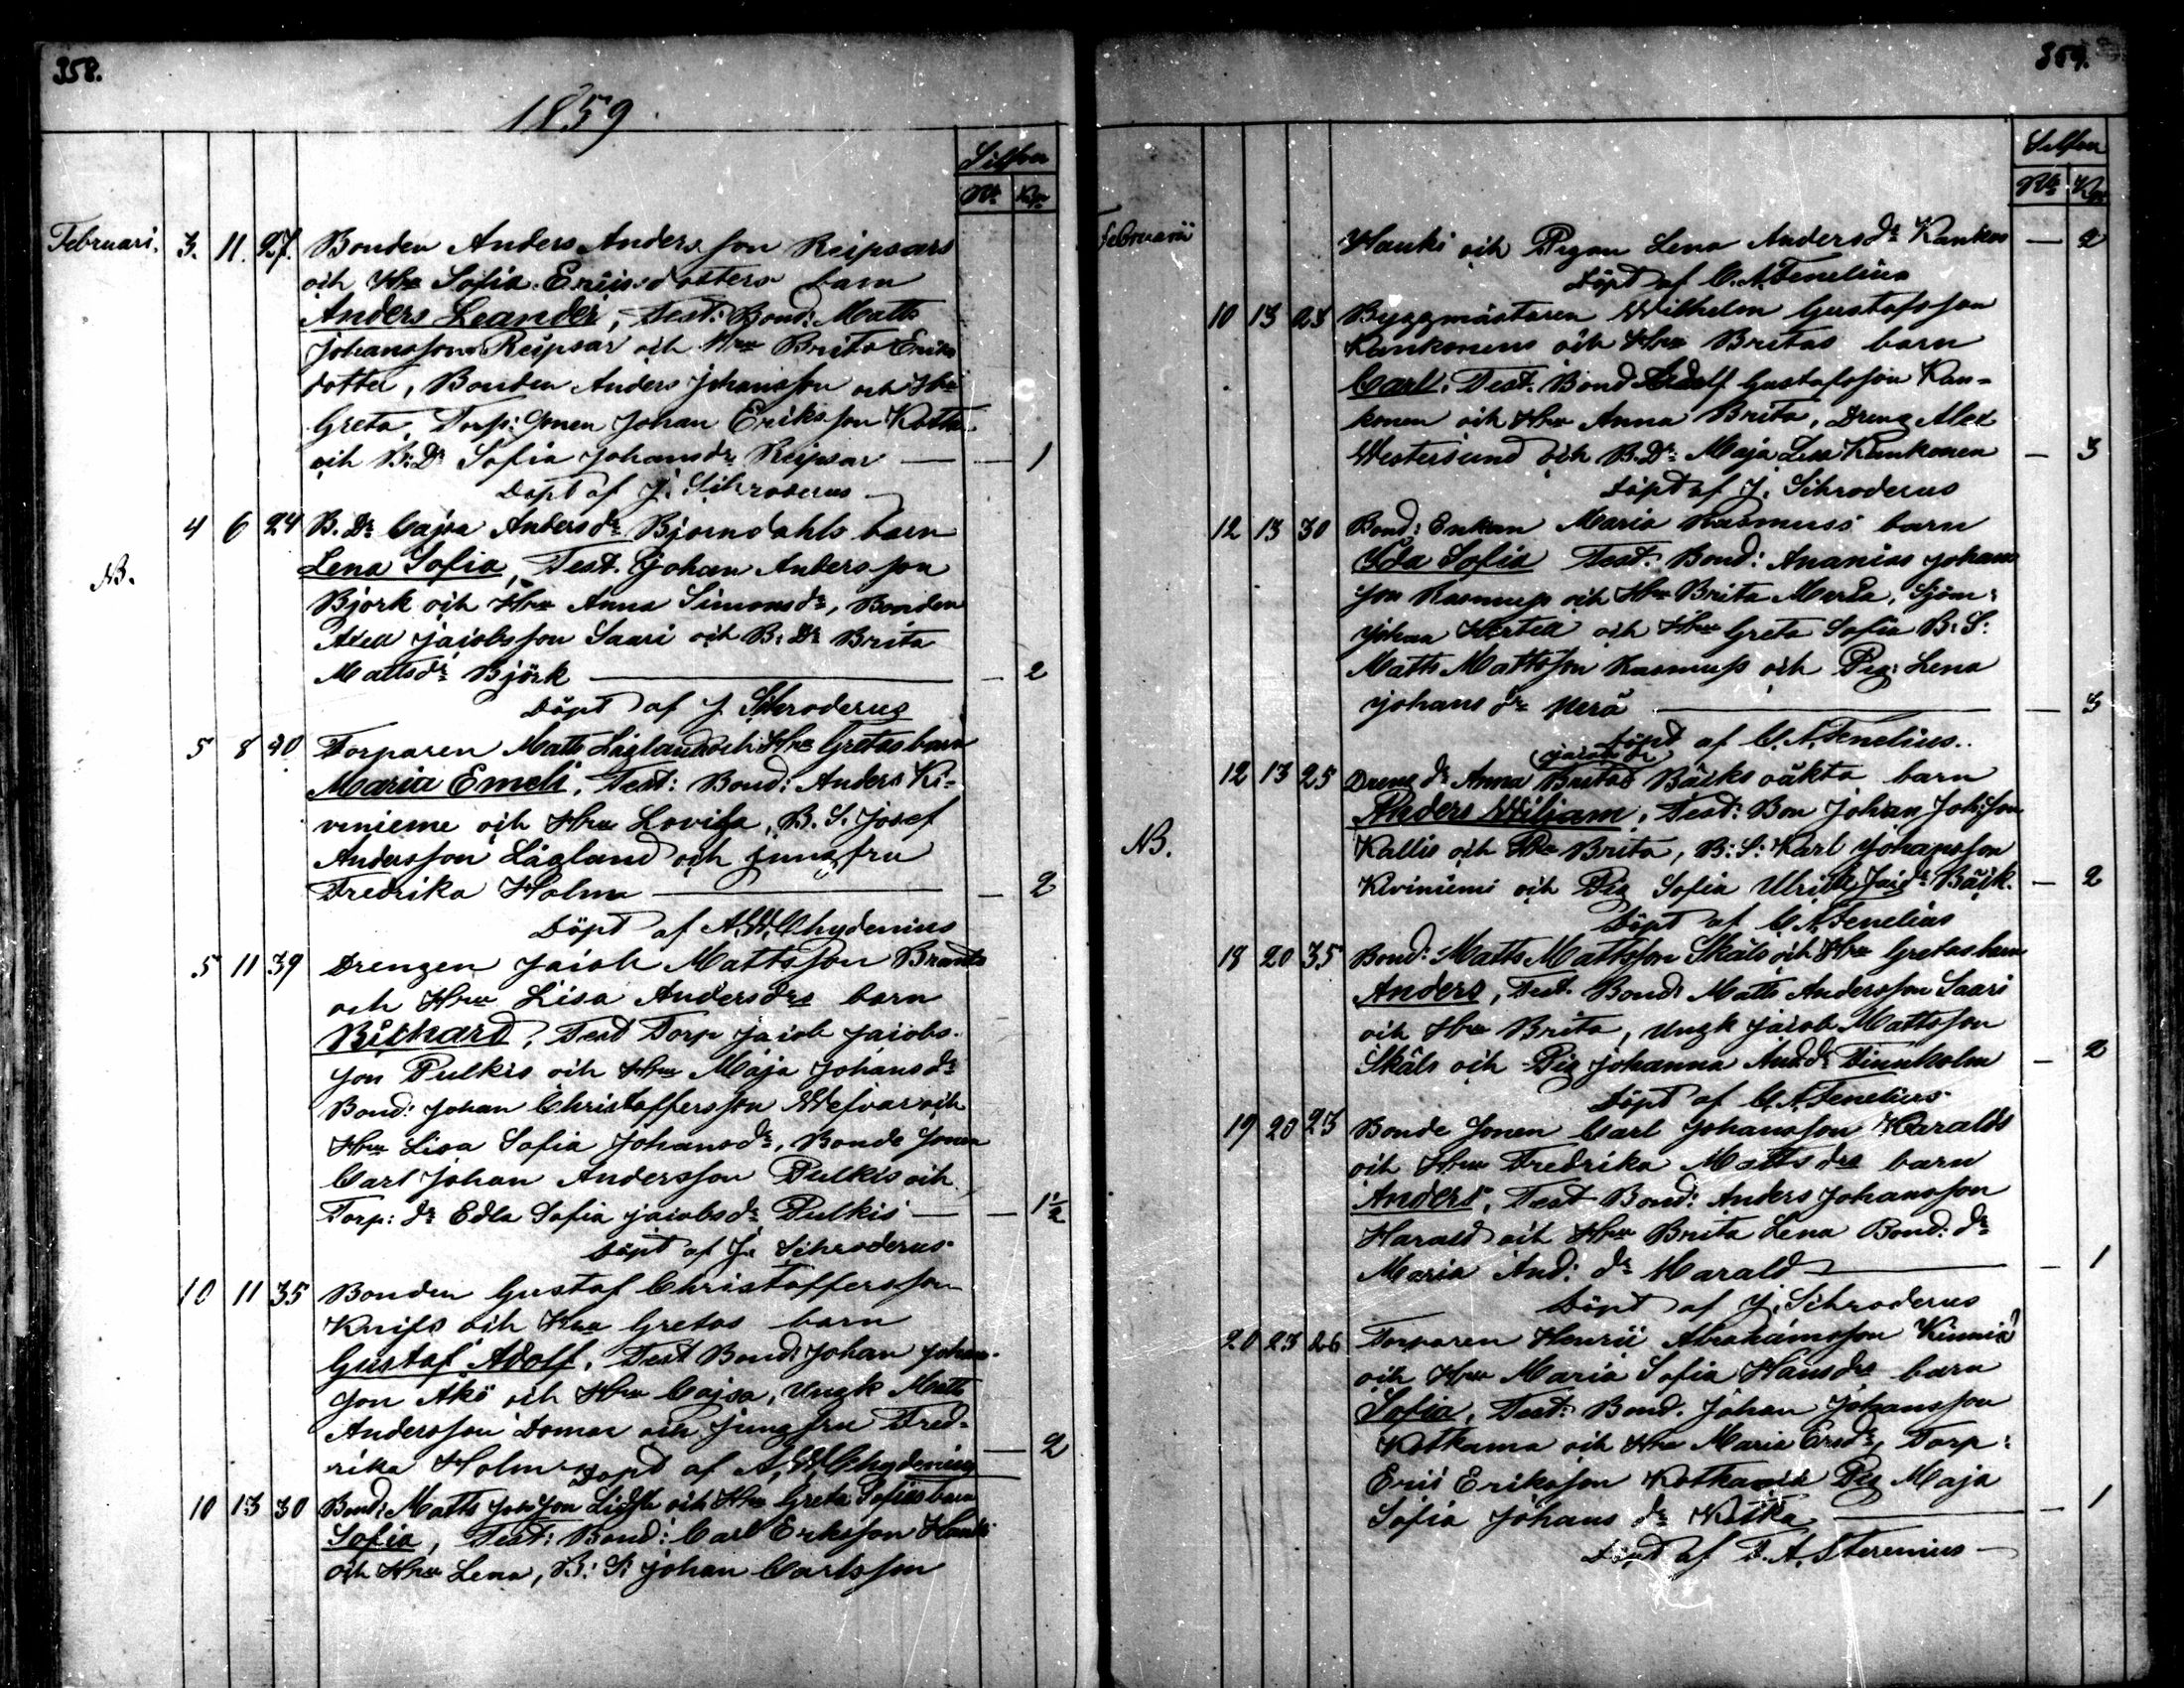 358.
1859
Silfver
Rb Kop
Februari. 3. 11. 27. Bonden Anders Andersson Reipsars
och Hru Sofia Ericsdotters barn
Anders Leander, Test: Bond: Matts
Johansson Reipsar och Hru Brita Eriks
dotter, Bonden Anders Johansson och Hru
Greta, Torp: Sonen Johan Eriksson Kotka
och B: Dr Sofia Johansdr Reipsar — — 1
Döpt af J. Schroderus
4 6 24 B. Dr Cajsa Andersdr Bjorndahls barn
NB. Lena Sofia, Test. Johan Andersson
Björk och Hru Anna Simonsdr, Bonden
Axell Jacobsson Saari och B: Dr Brita
Mattsdr Björk — — 2
Döpt af J. Schroderus
5 8 40 Torparen Matts Lågland och Hru Gretas barn
Maria Emeli, Test: Bond: Anders Ki-
vinieme och Hru Lovisa, B. S. Josef
Andersson Lågland och Jungfru
Fredrika Holm — — 2
Döpt af A. W. Chydenius
5 11 39 Drengen Jacob Mattsson Brants
och Hru Lisa Andersdrs barn
Richard, Test Torp Jacob Jacobs-
son Pulkis och Hru Maja Johansdr
Bond: Johan Christoffersson Wefvar och
Hru Lisa Sofia Johansdr, Bonde Sonen
Carl Johan Andersson Pulkis och
Torp: dr Edla Sofia Jacobsdr Pulkis — — 1½
Döpt af J. Schroderus
10 11 35 Bonden Gustaf Christoffersson
Knifs och Hru Gretas barn
Gustaf Adolf, Test Bond: Johan Johans-
son Åkö och Hru Cajsa, Ungk Matts
Andersson Domar och Jungfru Fred-
rika Holm Döpt af A. W. Chydenius — 2
10 13 30 Bond: Matts Johsson och Hru Greta Sofias barn
Sofia, Test: Bond: Carl Eriksson Hauki
och Hru Lena, B: S: Johan Carlsson
359.
Silfver
Rb Kop
Februarii Hauki och Pigan Lena Andersdr Kankos — 2
Döpt af C. A. Fenelius
10 13 23 Byggmästaren Wilhelm Gustafsson
Kankonens och Hru Britas barn
Carl, Test. Bond Adolf Gustafsson Kan-
konen och Hru Anna Brita, Dreng Alex
Westerlund och B. Dr Maja Lisa Kankonen — 3
Döpt af J. Schroderus
12 13 30 Bond: Enkan Maria Rasmuss barn
Ida Sofia Test. Bond: Ananias Johans
son Rasmuss och Hru Brita Maria, Sjöm:
Johan Hertell och Hru Greta Sofia B: S:
Matts Mattsson Rasmuss och Pig: Lena
Johansdr Perä — — 3
Döpt af C. A. Fenelius.
12 13 25 Dreng dr Anna Britas Bäcks oäkta barn
NB. Anders Wiliam, Test: Bon Johan Johsson
Kallis och Hru Brita, B: S: Karl Johansson
Kiviniemi och Pig Sofia Ulrik Jacdr Bäck. — 2
Döpt af C. A. Fenelius
18 20 35 Bond: Matts Mattsson Skåls och Hru Gretas barn
Anders, Test. Bond: Matts Andersson Saari
och Hru Brita, Ungk Jacob Mattsson
Skåls och Pig Johanna And:dr Finnholm — 2
Döpt af C. A. Fenelius
19 20 23 Bonde Sonen Carl Johansson Haralds
och Hru Fredrika Mattsdrs barn
Anders, Test Bond: Anders Johansson
Harald och Hru Brita Lena Bond: dr
Maria And: dr Harald — — 1
Döpt af J. Schroderus
20 23 26 Torparen Henric Abrahamsson Kinniä
och Hru Maria Sofia Hansdrs barn
Sofia, Test: Bond. Johan Johansson
Kotkama och Hru Maria Ersdr, Torp:
Eric Eriksson Kotkama Pig Maja
Sofia Johans dr Kotka — — 1
Döpt af F. A. Sterenius